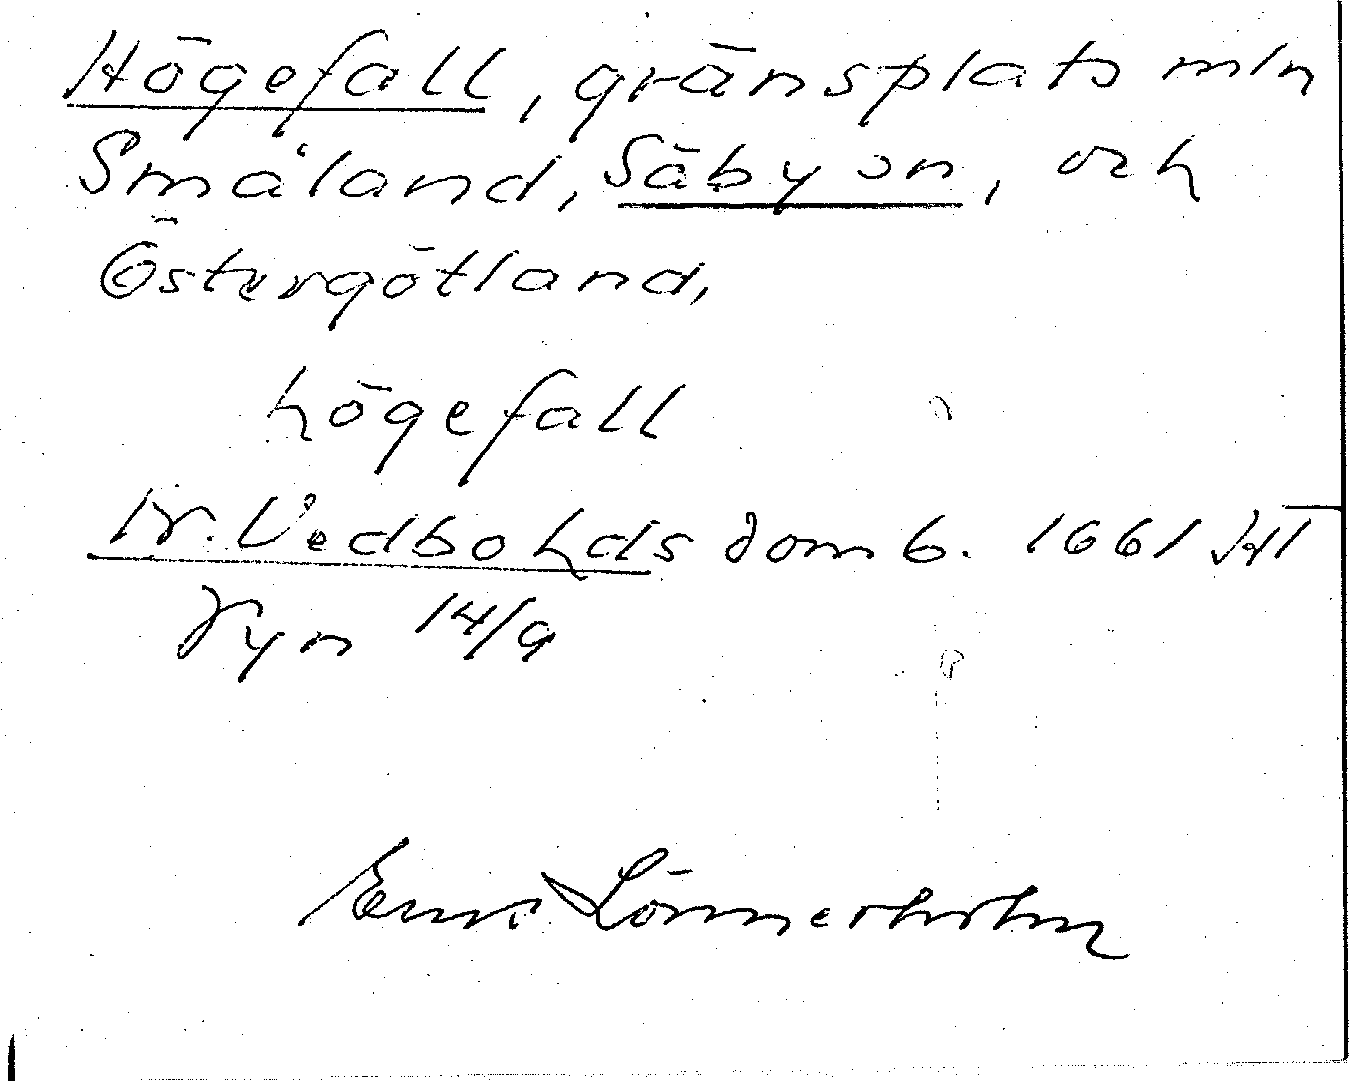 Högefall, gränsplats mln
Småland, Säby sn, och
Östergötland,
högefall
N. Vedbohds domb. 1661 HT
syn 14/9
Lönnerholm